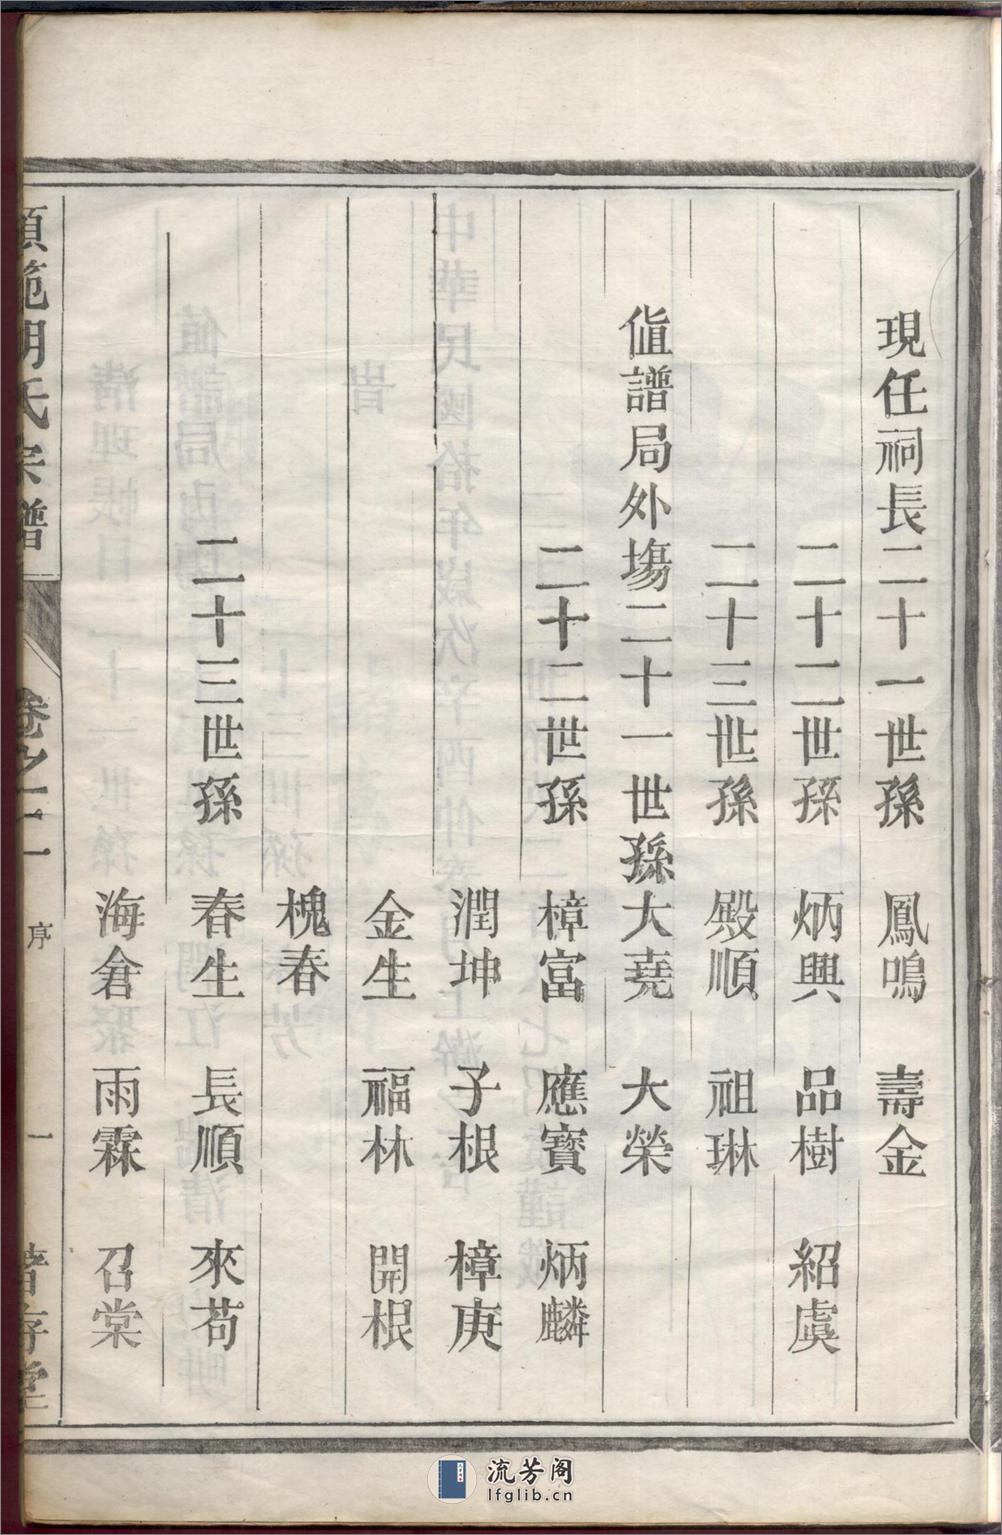 現任祠長二十一世孫 鳳鳴 壽金
二十二世孫 炳興 品樹 紹虞
二十三世孫 殿順 祖琳
値譜局外塲二十一世孫 大堯 大榮
二十二世孫 樟富 應寶 炳麟
潤坤 子根 樟庚
金生 福林 開根
槐春
二十三世孫 春生 長順 來苟
海倉 雨霖 召棠
範胡氏宗譜 卷之二 序 一 存堂
流芳阁
lfglib.cn